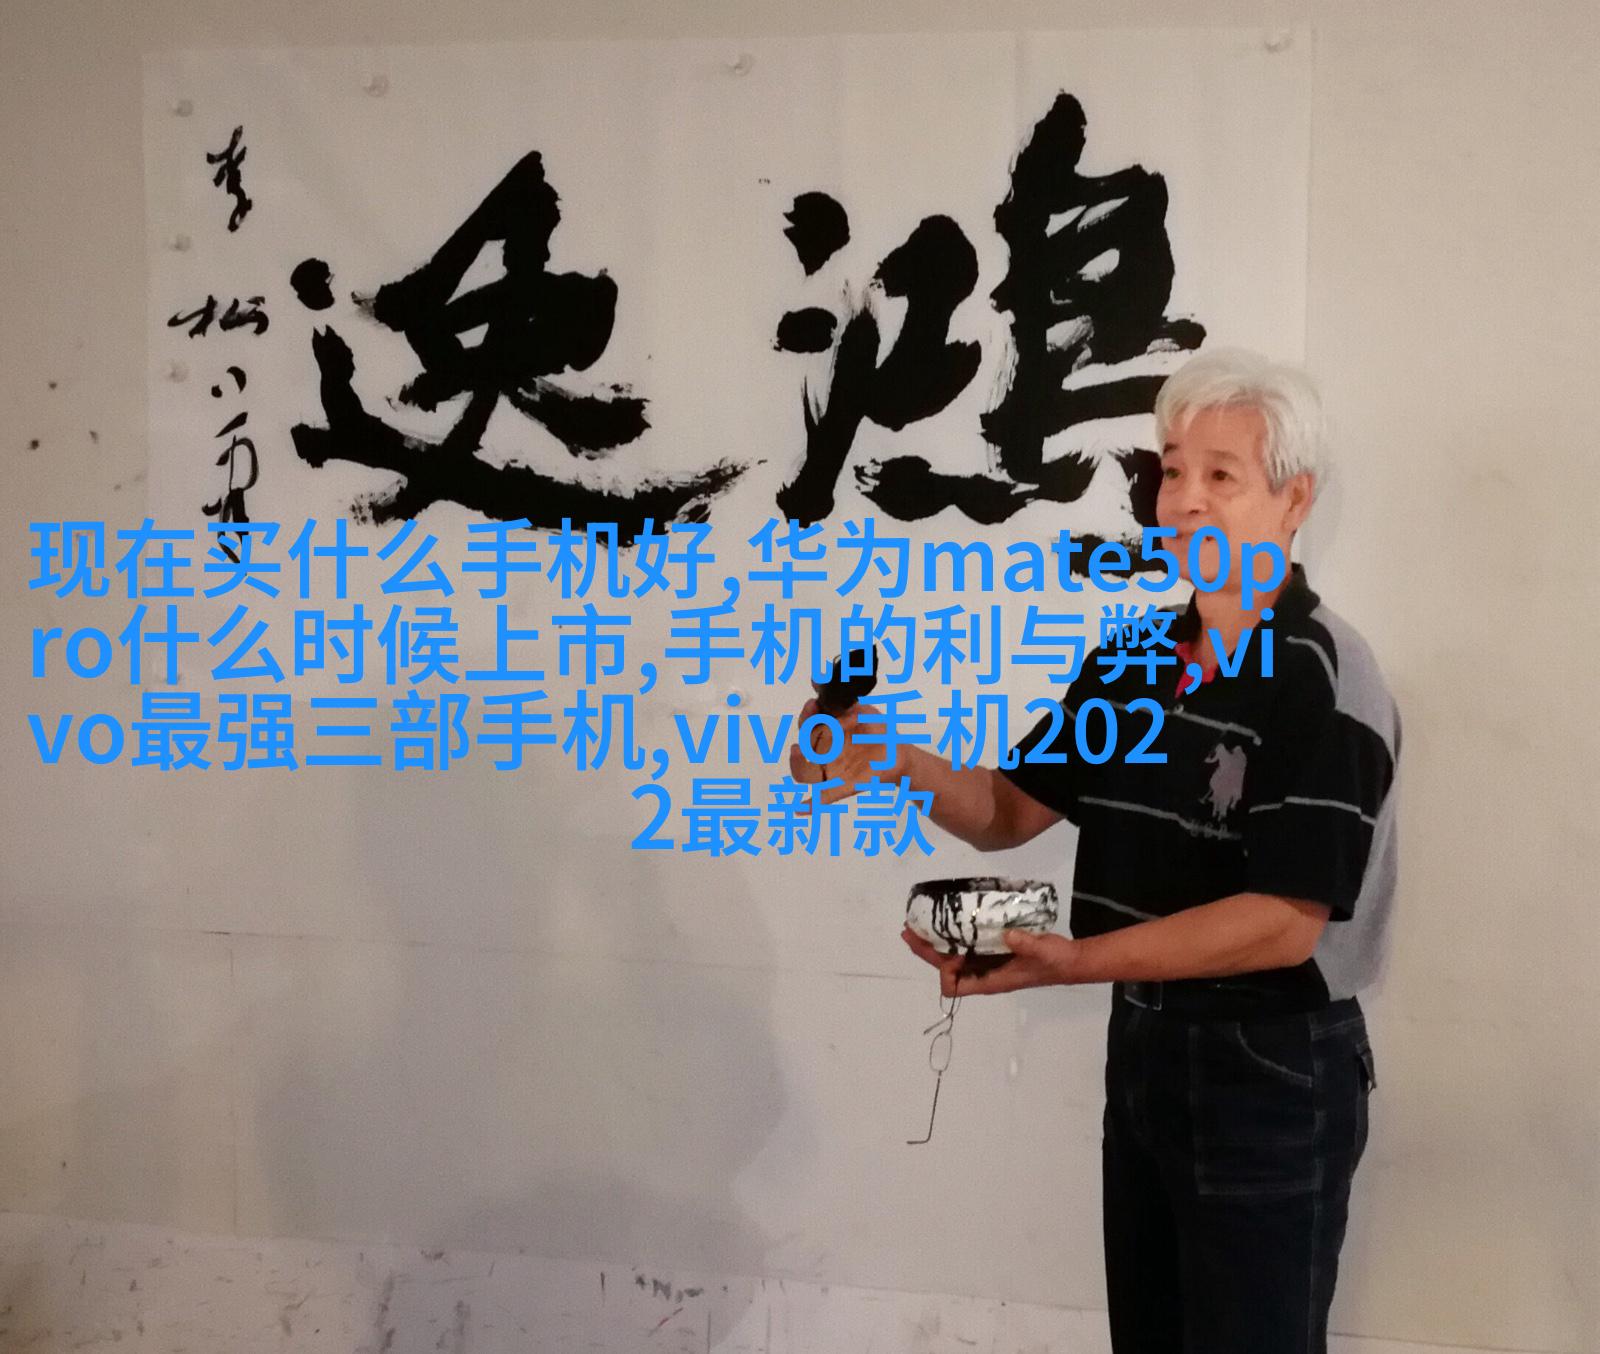 鸿逸
李松
现在买什么手机好,华为mate50p
ro什么时候上市,手机的利与弊,vi
vo最强三部手机,vivo手机202
2最新款